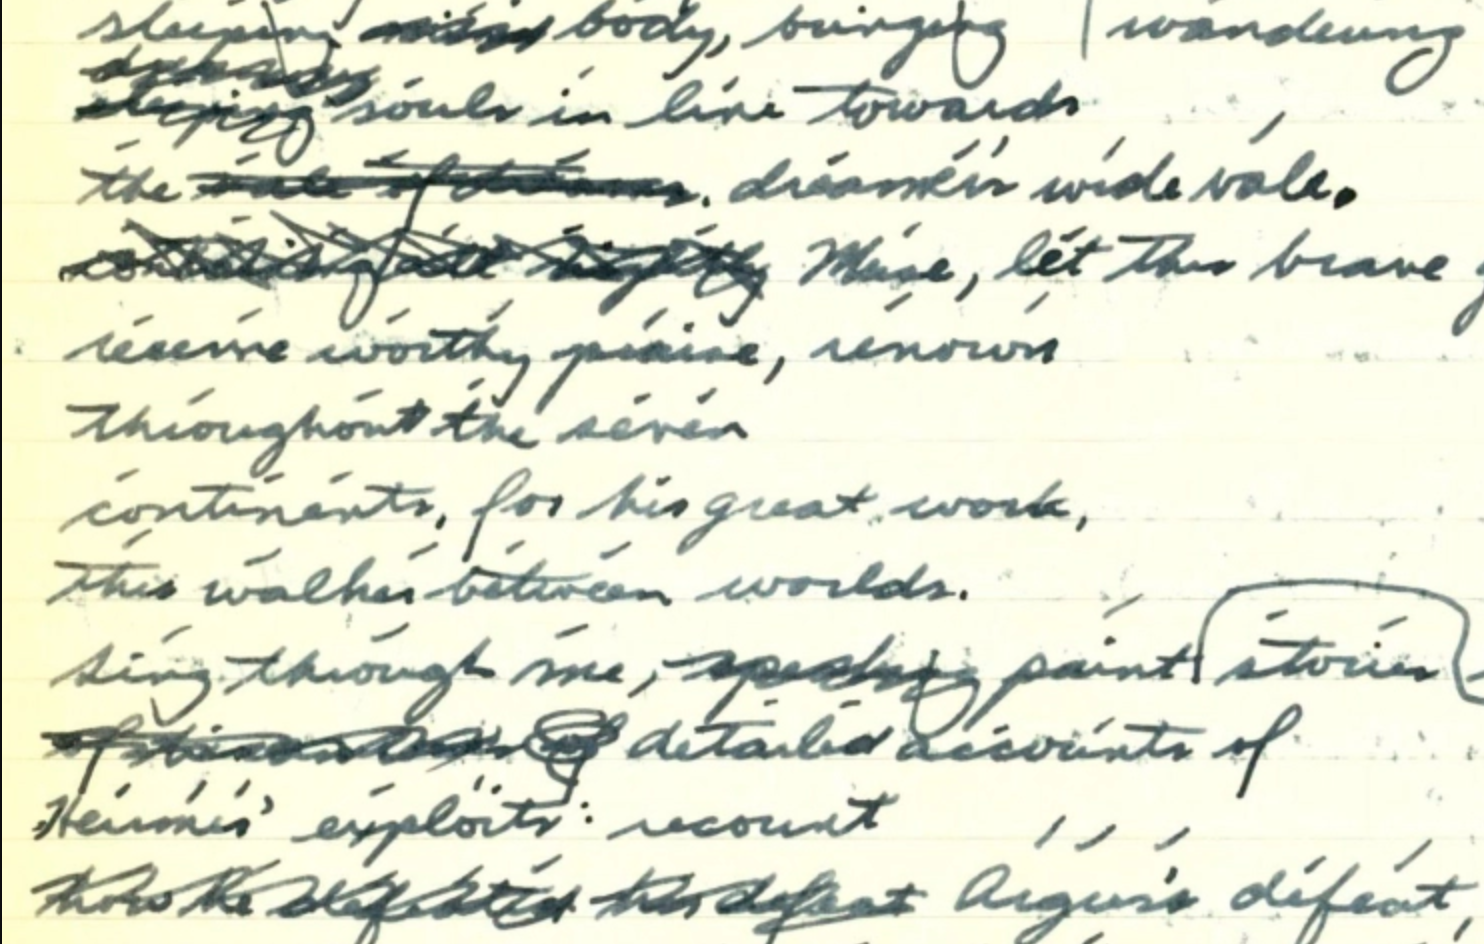 sleeping body, bringing wandering
sleeping souls in line towards
the vale of dreams. dreamer's wide vale.
nightly Muse, let this brave
receive worthy praise, renown
throughout the seven
continents, for his great work,
this walker between worlds.
sing through me, speaking paint stories
of detailed accounts of
Hermes' exploits: recount
how he defeated his defeat Argus's defeat,